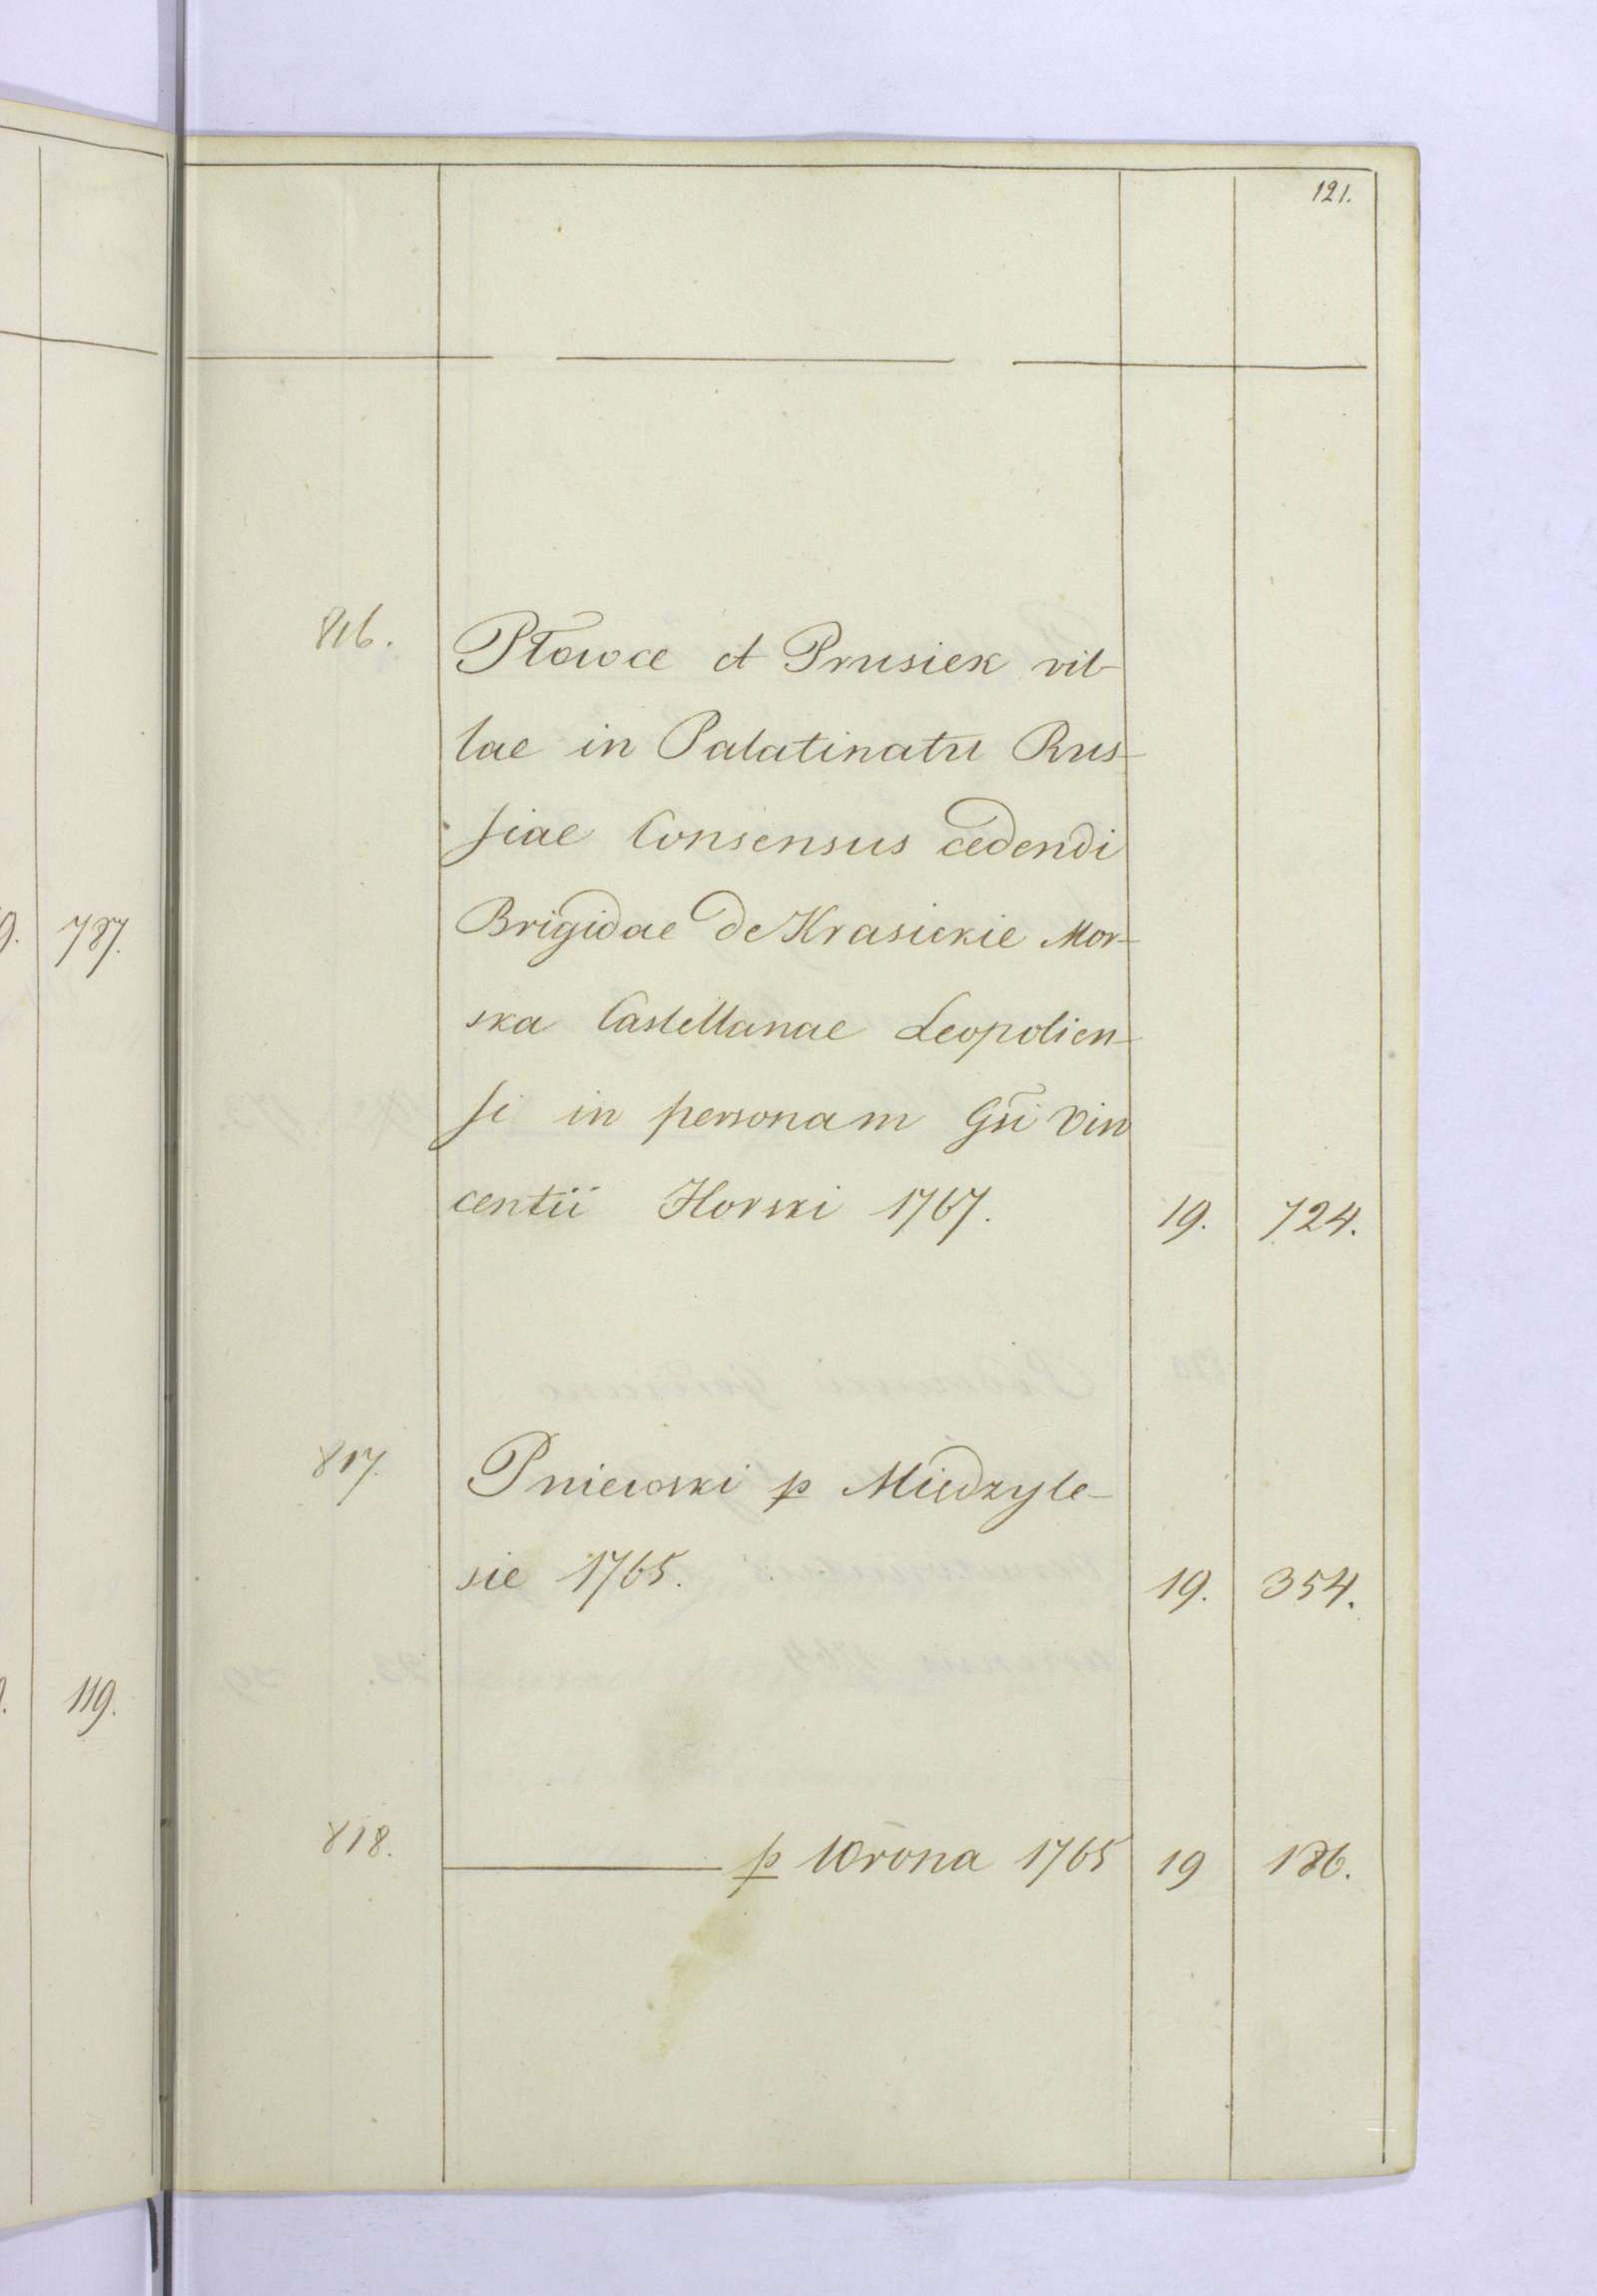 121.
816. Płowce et Prusiek vil-
lae in Palatinatu Rus-
siae Consensus cedendi
Brigidae de Krasickie Mor-
ska Castellanae Leopolien-
si in personam Gsi Vin
centii Horski 1767. 19. 724.
817. Pniewski p Miedzyle-
sie 1765. 19. 354.
818. ——— p Wrona 1765 19 186.
787.
119.